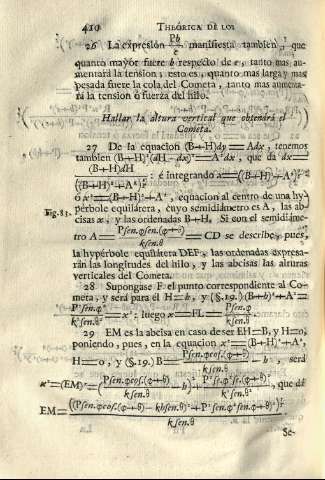 410 THEÓRICA DE LOS
26 La expresión Pb/e manifiesta tambien, que
quanto mayor fuere b respecto de e, tanto mas au-
mentará la tension; esto es, quanto mas larga y mas
pesada fuere la cola del Cometa, tanto mas aumenta-
rá la tension ò fuerza del hilo.
Hallar la altura vertical que obtendrá el
Cometa.
27 De la equacion (B+H)dy=Adx, tenemos
tambien (B+H)²(dH²-dx²)=A²dx², que da dx=
(B+H)dH/((B+H)²+A²)^½: é integrando x=((B+H)²+A²)^½
ò x²=(B+H)²+A², equacion al centro de una hy-
pérbole equilátera, cuyo semidiámetro es A, las ab-
Fig. 83. cisas x, y las ordenadas B+H. Si con el semidiáme-
tro A=Psen.φsen.(φ+θ)/ksen.θ=CD se describe, pues,
la hypérbole equilátera DEF, las ordenadas expresa-
rán las longitudes del hilo, y las abcisas las alturas
verticales del Cometa.
28 Supongase F el punto correspondiente al Co-
meta, y será para él H=b, y (§.19.) (B+b)²+A²=
P²sen.φ²/k²sen.θ²=x²: luego x=FL=Psen.φ/ksen.θ.
29 EM es la abcisa en caso de ser EH=B, y H=0,
poniendo, pues, en la equacion x²=(B+H)²+A²,
H=0, y (§.19.) B=Psen.φcos.(φ+θ)/ksen.θ-b, será
x²=(EM)²=(Psen.φcos.(φ+θ)/ksen.θ-b)²+P²sen.φ²sen.(φ+θ)²/k²sen.θ², que dá
EM=((Psen.φcos.(φ+θ)-kbsen.θ)²+P²sen.φ²sen.(φ+θ)²)^½/ksen.θ
Se-